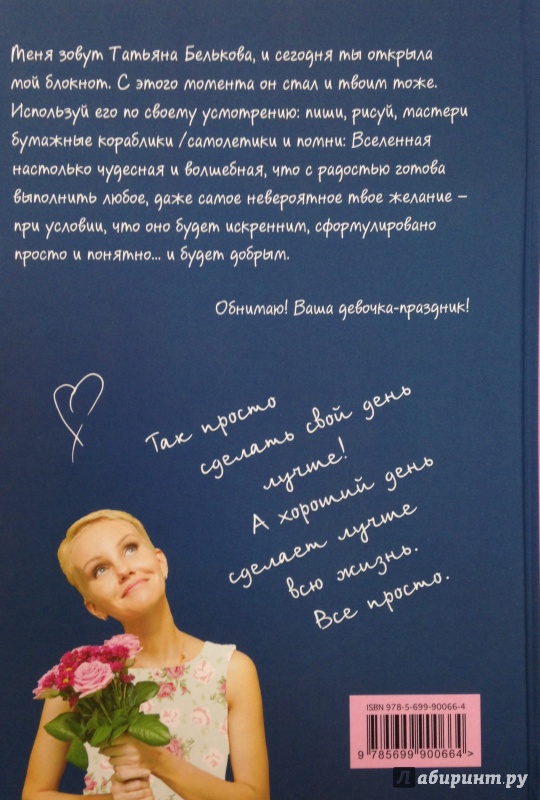 Меня зовут Татьяна Белькова, и сегодня ты открыла
мой блокнот. С этого момента он стал и твоим тоже.
Используй его по своему усмотрению: пиши, рисуй, мастери
бумажные кораблики /самолетики и помни: Вселенная
настолько чудесная и волшебная, что с радостью готова
выполнить любое, даже самое невероятное твое желание –
при условии, что оно будет искренним, сформулировано
просто и понятно... и будет добрым.
Обнимаю! Ваша девочка-праздник!
Так просто
сделать свой день
лучше!
А хороший день
сделает лучше
всю жизнь.
Все просто.
ISBN 978-5-699-90066-4
9 785699 900664 >
Лабиринт.ру